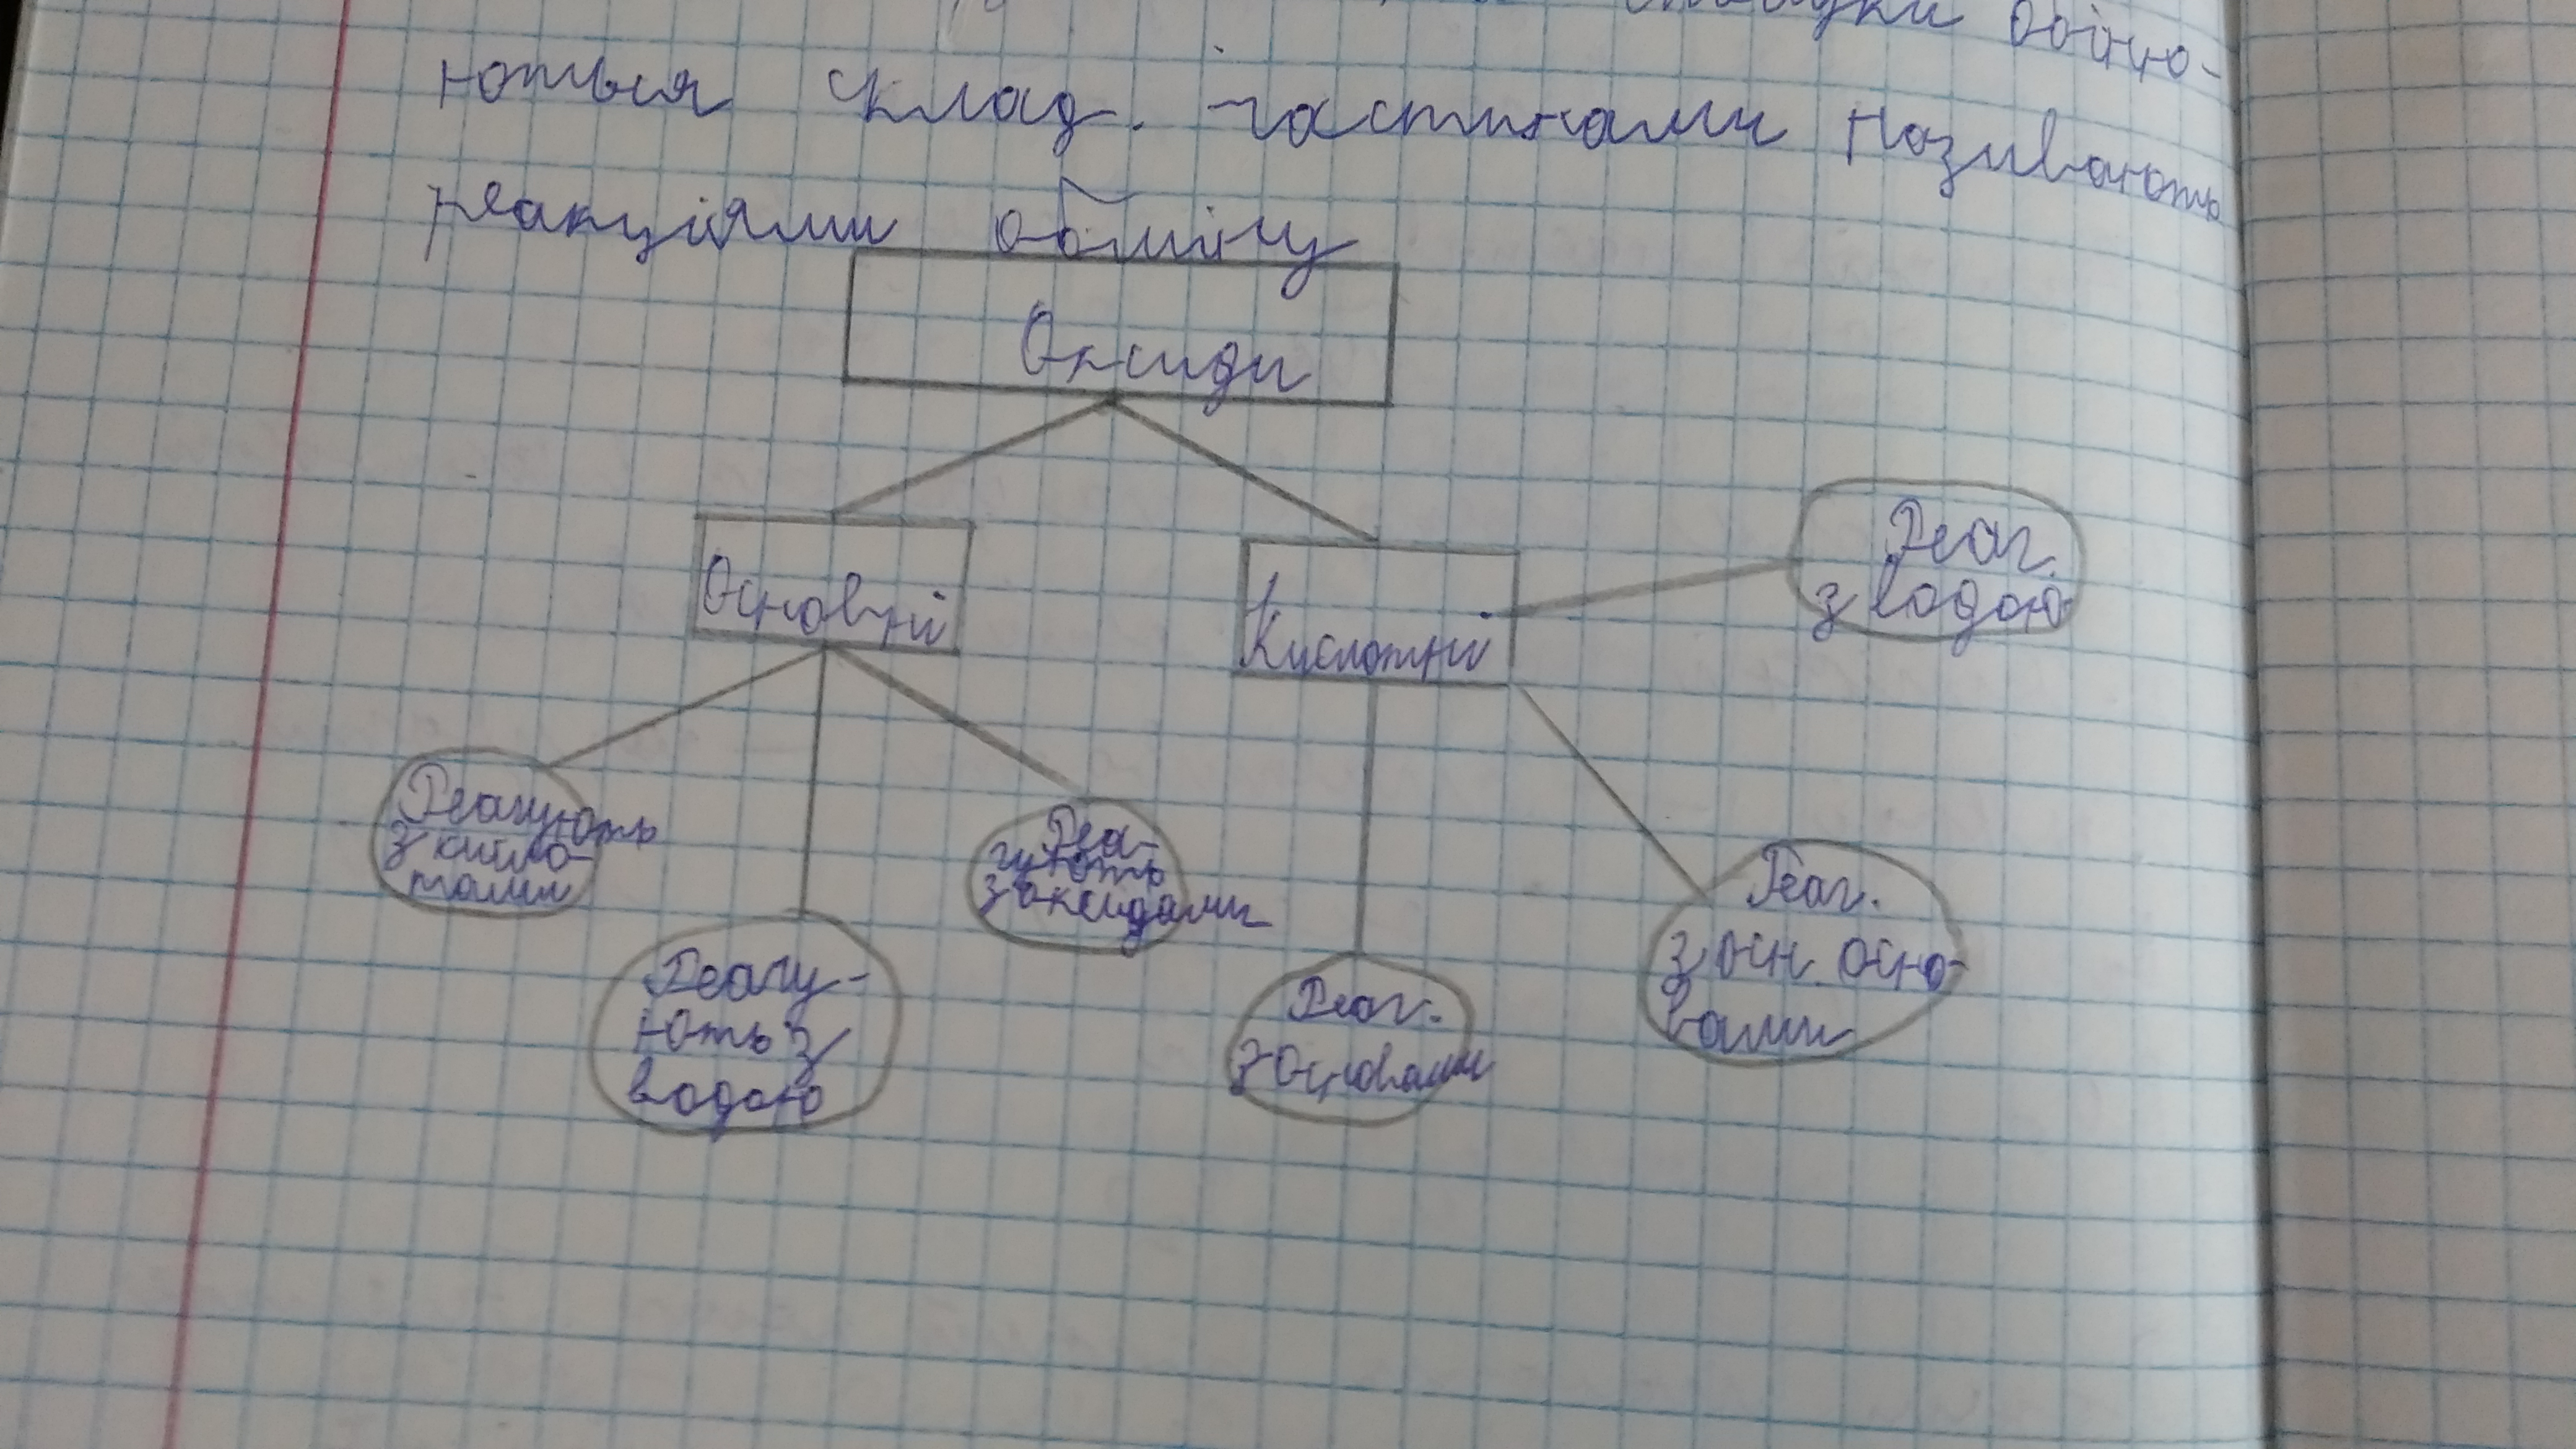 обміню-
ються склад. частинами називають
реакціями обміну
Оксиди
Основні
Кислотні
Реаг.
з водою
Реагують
з кисло-
тами
Реагу-
ють з
водою
Реа-
гують
з оксидами
Реаг.
з основами
Реаг.
з осн. осно-
вами